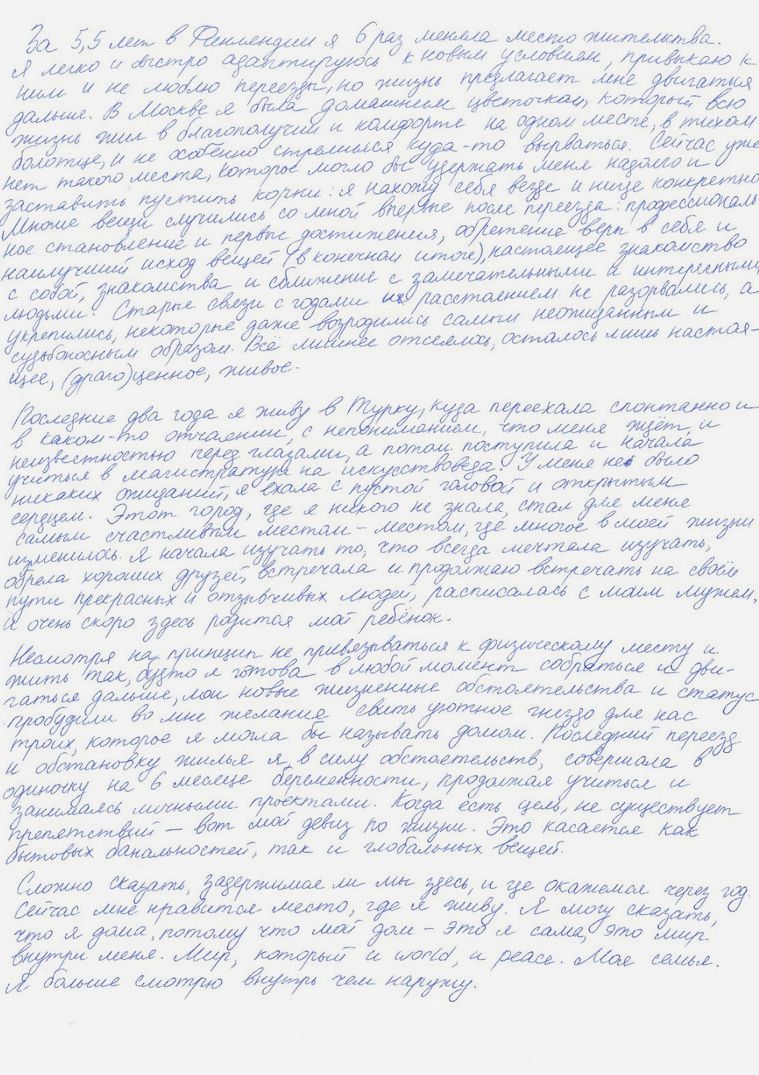 За 5,5 лет в Финляндии я 6 раз меняла место жительства.
Я легко и быстро адаптируюсь к новым условиям, привыкаю к
ним и не люблю переезды, но жизнь предлагает мне двигаться
дальше. В Москве я была домашним цветочком, который всю
жизнь жил в благополучии и комфорте на одном месте, в тихом
болотце, и не особенно стремился куда-то вырваться. Сейчас уже
нет такого места, которое могло бы удержать меня надолго и
заставить пустить корни: я нахожу себя везде и нигде конкретно
Многие вещи случились со мной впервые после переезда: профессиональ
ное становление и первые достижения, обретение веры в себя и
наилучший исход вещей (в конечном итоге), настоящее знакомство
с собой, знакомства и сближение с замечательными и интересными
людьми. Старые связи с годами и расстоянием не разорвались, а
укрепились, некоторые даже возродились самым неожиданным и
судьбоносным образом. Всё лишнее отсеялось, осталось лишь настоя-
щее, (драго)ценное, живое.
Последние два года я живу в Турку, куда переехала спонтанно и
в каком-то отчаянии, с непониманием, что меня ждёт, и
неизвестностью перед глазами, а потом поступила и начала
учиться в магистратуре на искусствоведа. У меня не было
никаких ожиданий, я ехала с пустой головой и открытым
сердцем. Этот город, где я никого не знала, стал для меня
самым счастливым местом - местом, где многое в моей жизни
изменилось. Я начала изучать то, что всегда мечтала изучать,
обрела хороших друзей, встречала и продолжаю встречать на своём
пути прекрасных и отзывчивых людей, расписалась с моим мужем,
и очень скоро здесь родится мой ребёнок.
Несмотря на принцип не привязываться к физическому месту и
жить так, будто я готова в любой момент собраться и дви-
гаться дальше, мои новые жизненные обстоятельства и статус
пробудили во мне желание свить уютное гнездо для нас
троих, которое я могла бы называть домом. Последний переезд
и обстановку жилья я, в силу обстоятельств, совершала в
одиночку на 6 месяце беременности, продолжая учиться и
занимаясь личными проектами. Когда есть цель, не существует
препятствий — вот мой девиз по жизни. Это касается как
бытовых банальностей, так и глобальных вещей.
Сложно сказать, задержимся ли мы здесь, и где окажемся через год.
Сейчас мне нравится место, где я живу. Я могу сказать,
что я дома, потому что мой дом - это я сама, это мир
внутри меня. Мир, который и world, и peace. Моя семья.
Я больше смотрю внутрь чем наружу.